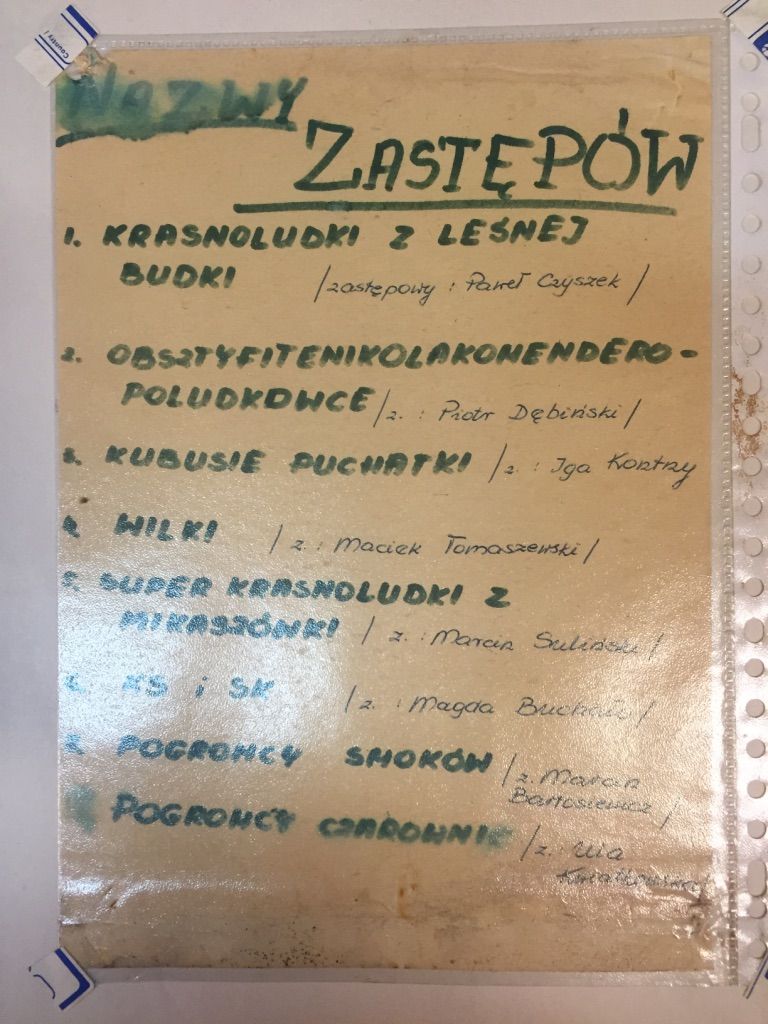 NAZWY
ZASTĘPÓW
1. KRASNOLUDKI Z LEŚNEJ
BUDKI /zastępowy : Paweł Czyszek/
2. OBSZTYFITENIKOLAKOMENDERO-
POLUDKOWCE /z. : Piotr Dębiński/
3. KUBUSIE PUCHATKI /z. : Iga Kontny
4. WILKI /z. : Maciek Tomaszewski/
5. SUPER KRASNOLUDKI Z
MIKASZÓWKI /z. : Marcin Suliński/
6. KS i SK /z. : Magda
7. POGROMCY SMOKÓW /z. Marcin
Bartosiewicz/
POGROMCY CZAROWNIC /z. : Ula
Kwiatkowska/